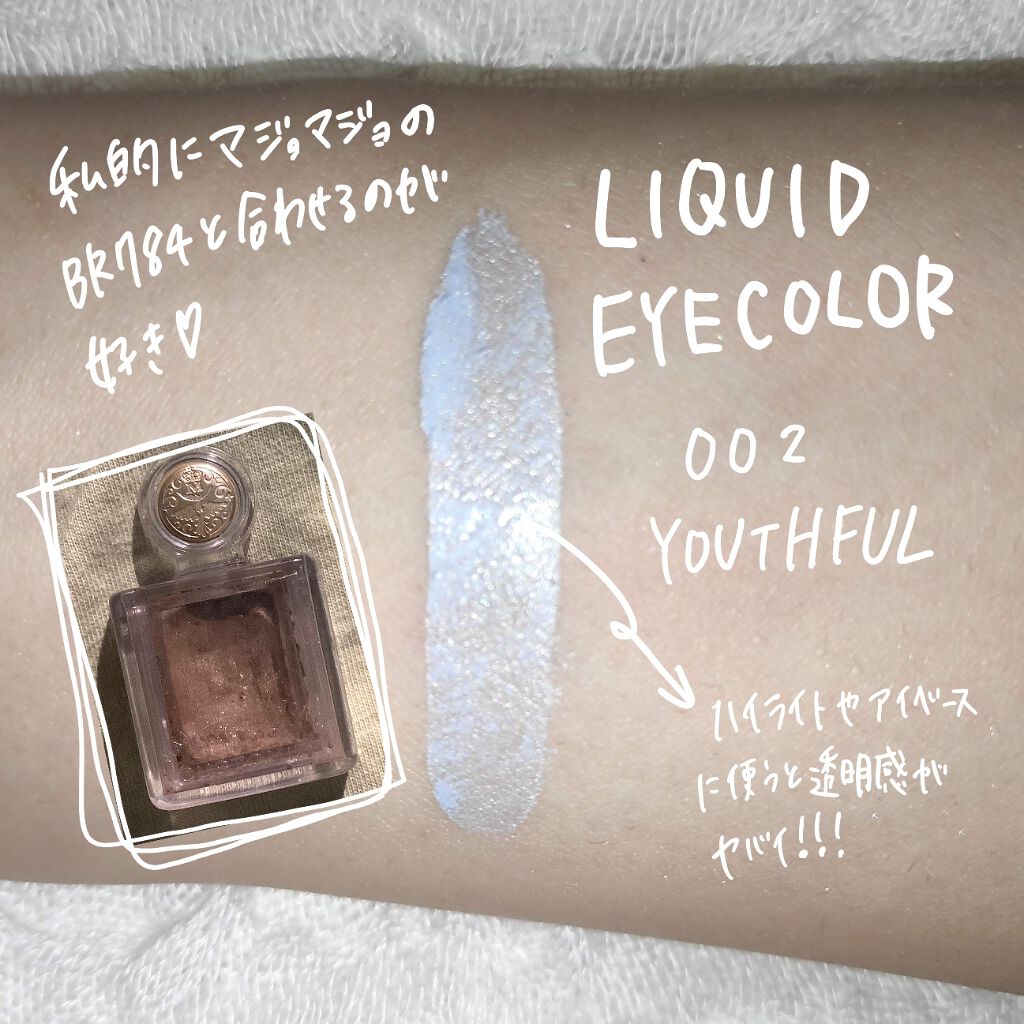 私的にマジョマジョの
BR784と合わせるのが
好き♡
LIQUID
EYECOLOR
002
YOUTHFUL
ハイライトやアイベース
に使うと透明感が
ヤバイ!!!